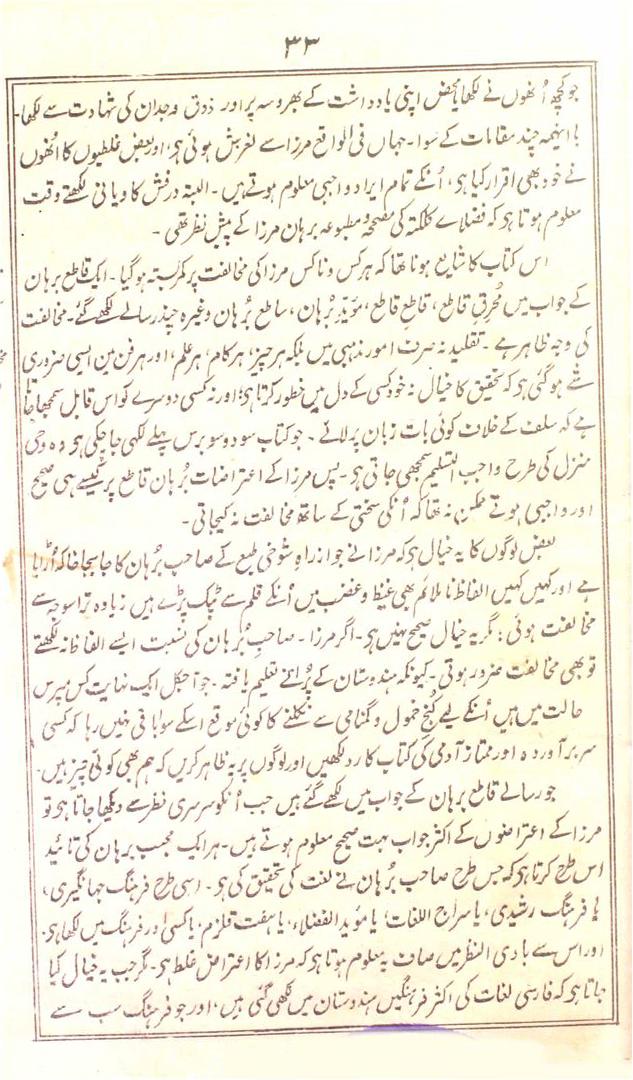 ۳۳
جو کچھ اُنھوں نے لکھا یا محض اپنی یادداشت کے بھروسہ پر اور ذوق وجدان کی شہادت سے لکھا۔
با اینہمہ چند مقامات کے سوا۔ جہاں فی الواقع مرزا سے لغزش ہوئی ہی، اور بعض غلطیوں کا اُنھوں
نے خود بھی اقرار کیا ہی، اُنکے تمام ایراد واجبی معلوم ہوتے ہیں۔ البتہ درفش کاویانی لکھتے وقت
معلوم ہوتا ہی کہ فضلاے کلکتہ کی مصححہ مطبوعہ برہان مرزا کے پیش نظر تھی۔
اس کتاب کا شایع ہونا تھا کہ ہر کس و ناکس مرزا کی مخالفت پر کمر بستہ ہو گیا۔ ایک قاطع برہان
کے جواب میں محرق قاطع، قاطع قاطع، مؤید برہان، ساطع برہان وغیرہ چند رسالے لکھے گئے۔ مخالفت
کی وجہ ظاہر ہے۔ تقلید نہ صرف امور مذہبی میں بلکہ ہر چیز، ہر کام، ہر علم، اور ہر فن میں ایسی ضروری
شے ہو گئی ہی کہ تحقیق کا خیال نہ خود کسی کے دل میں خطور کرتا ہی، اور نہ کسی دوسرے کو اس قابل سمجھا جاتا
ہے کہ سلف کے خلاف کوئی بات زبان پر لائے۔ جو کتاب سو دو سو برس پہلے لکھی جا چکی ہی وہ وحی
منزل کی طرح واجب التسلیم سمجھی جاتی ہی۔ پس مرزا کے اعتراضات برہان قاطع پر کیسے ہی صحیح
اور واجبی ہوتے ممکن نہ تھا کہ اُنکی سختی کے ساتھ مخالفت نہ کیجاتی۔
بعض لوگوں کا یہ خیال ہی کہ مرزا نے جو از راہِ شوخی طبع کے صاحبِ برہان کا جا بجا خاکہ اُڑایا
ہے اور کہیں کہیں الفاظ ناملائم بھی غیظ و غضب میں اُنکے قلم سے ٹپک پڑے ہیں زیادہ تر اسوجہ سے
مخالفت ہوئی؛ مگر یہ خیال صحیح نہیں ہی۔ اگر مرزا۔ صاحبِ برہان کی نسبت ایسے الفاظ نہ لکھتے
تو بھی مخالفت ضرور ہوتی۔ کیونکہ ہندوستان کے پُرانے تعلیم یافتہ۔ جو آجکل ایک نہایت کس مپرس
حالت میں ہیں اُنکے لیے کنج خمول و گمنامی سے نکلنے کا کوئی موقع اسکے سوا باقی نہیں رہا کہ کسی
سربرآوردہ اور ممتاز آدمی کی کتاب کا رد لکھیں اور لوگوں پر یہ ظاہر کریں کہ ہم بھی کوئی چیز ہیں۔
جو رسالے قاطع برہان کے جواب میں لکھے گئے ہیں جب اُنکو سرسری نظر سے دیکھا جاتا ہی تو
مرزا کے اعتراضوں کے اکثر جواب بہت صحیح معلوم ہوتے ہیں۔ ہر ایک مجیب برہان کی تائید
اس طرح کرتا ہی کہ جس طرح صاحب برہان نے لغت کی تحقیق کی ہی۔ اسی طرح فرہنگ جہانگیری،
یا فرہنگ رشیدی، یا سراج اللغات، یا مؤید الفضلاء، یا ہفت قلزم، یا کسی اور فرہنگ میں لکھا ہی۔
اور اس سے بادی النظر میں صاف یہ معلوم ہوتا ہی کہ مرزا کا اعتراض غلط ہی۔ مگر جب یہ خیال کیا
جاتا ہی کہ فارسی لغات کی اکثر فرہنگیں ہندوستان میں لکھی گئی ہیں، اور جو فرہنگ سب سے